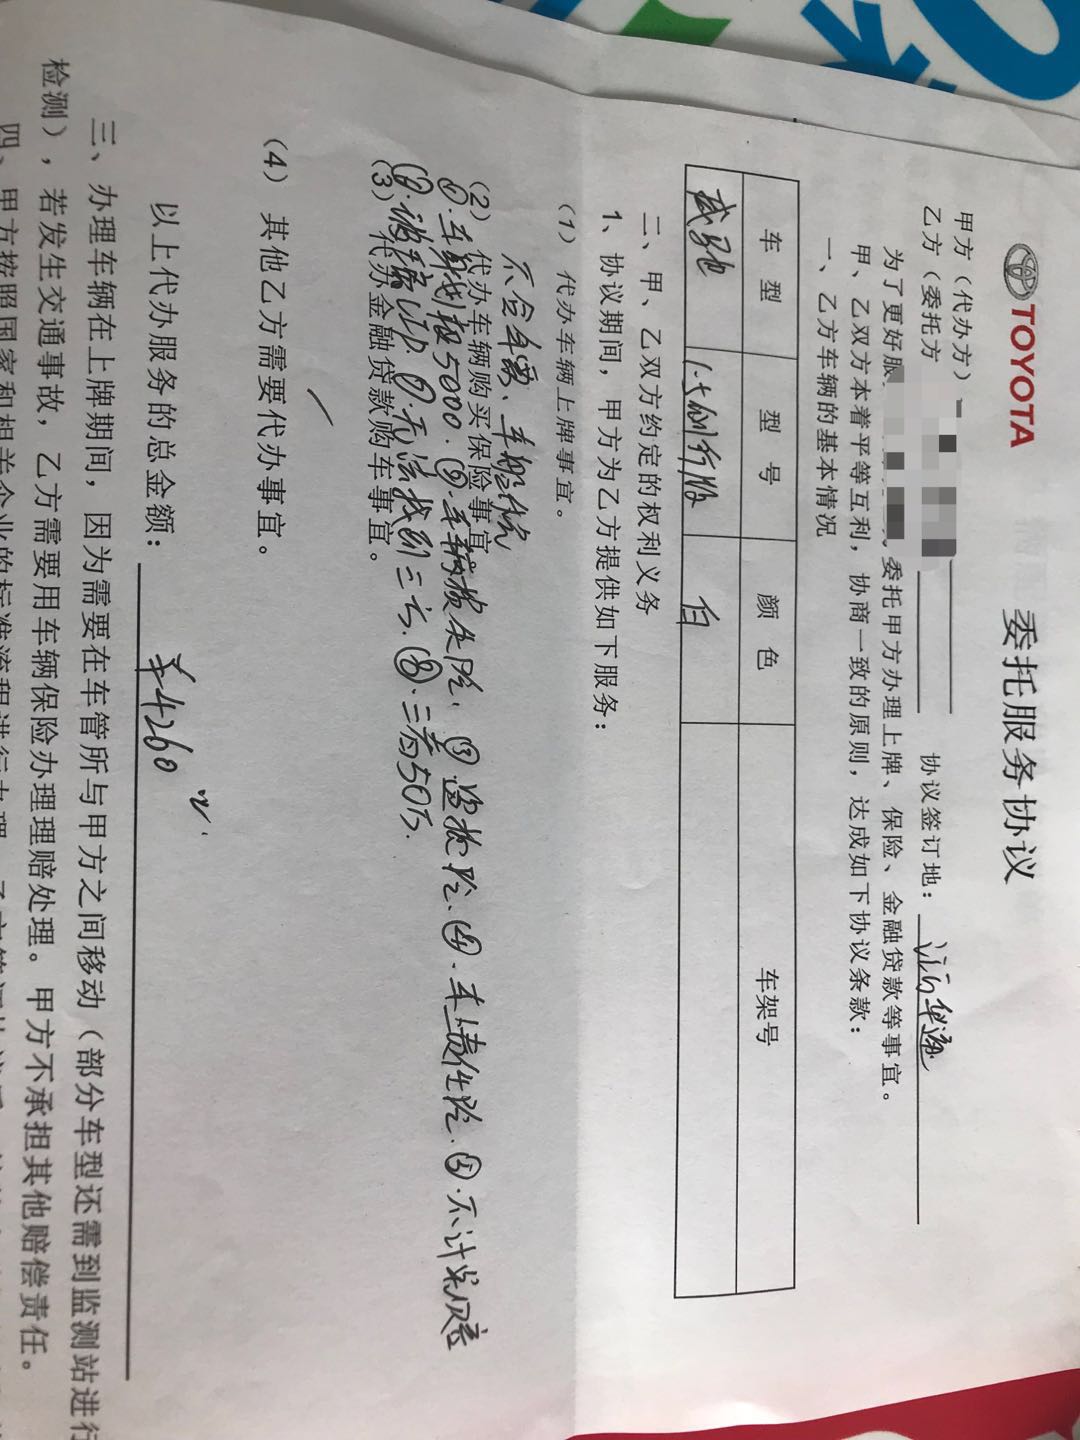 TOYOTA
委托服务协议
甲方（代办方）
乙方（委托方
协议签订地：
为了更好服
委托甲方办理上牌、保险、金融贷款等事宜。
甲、乙双方本着平等互利，协商一致的原则，达成如下协议条款：
一、乙方车辆的基本情况
车 型 型 号 颜 色 车架号
威驰 白
二、甲、乙双方约定的权利义务
1、协议期间，甲方为乙方提供如下服务：
（1）代办车辆上牌事宜。
不含车损、车船税
（2）代办车辆购买保险事宜
①.车身划痕5000.②.车辆损失险.③.盗抢险.④.车上责任险.⑤.不计免赔
（3）代办金融贷款购车事宜。
⑥.玻璃 ⑦.无法找到三方.⑧.三者50万.
（4）其他乙方需要代办事宜。
以上代办服务的总金额：
¥4260
三、办理车辆在上牌期间，因为需要在车管所与甲方之间移动（部分车型还需到监测站进行
检测），若发生交通事故，乙方需要用车辆保险办理理赔处理。甲方不承担其他赔偿责任。
四、甲方按照国家和相关企业的标准流程进行办理